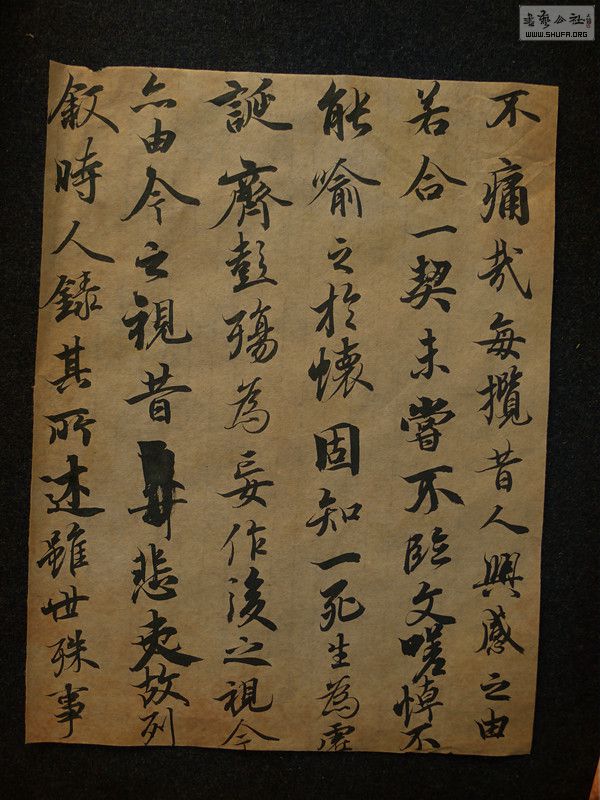 書藝公社
WWW.SHUFA.ORG
不痛哉每攬昔人興感之由
若合一契未嘗不臨文嗟悼不
能喻之於懷固知一死生為虛
誕齊彭殤為妄作後之視今
亦由今之視昔悲夫故列
敘時人錄其所述雖世殊事